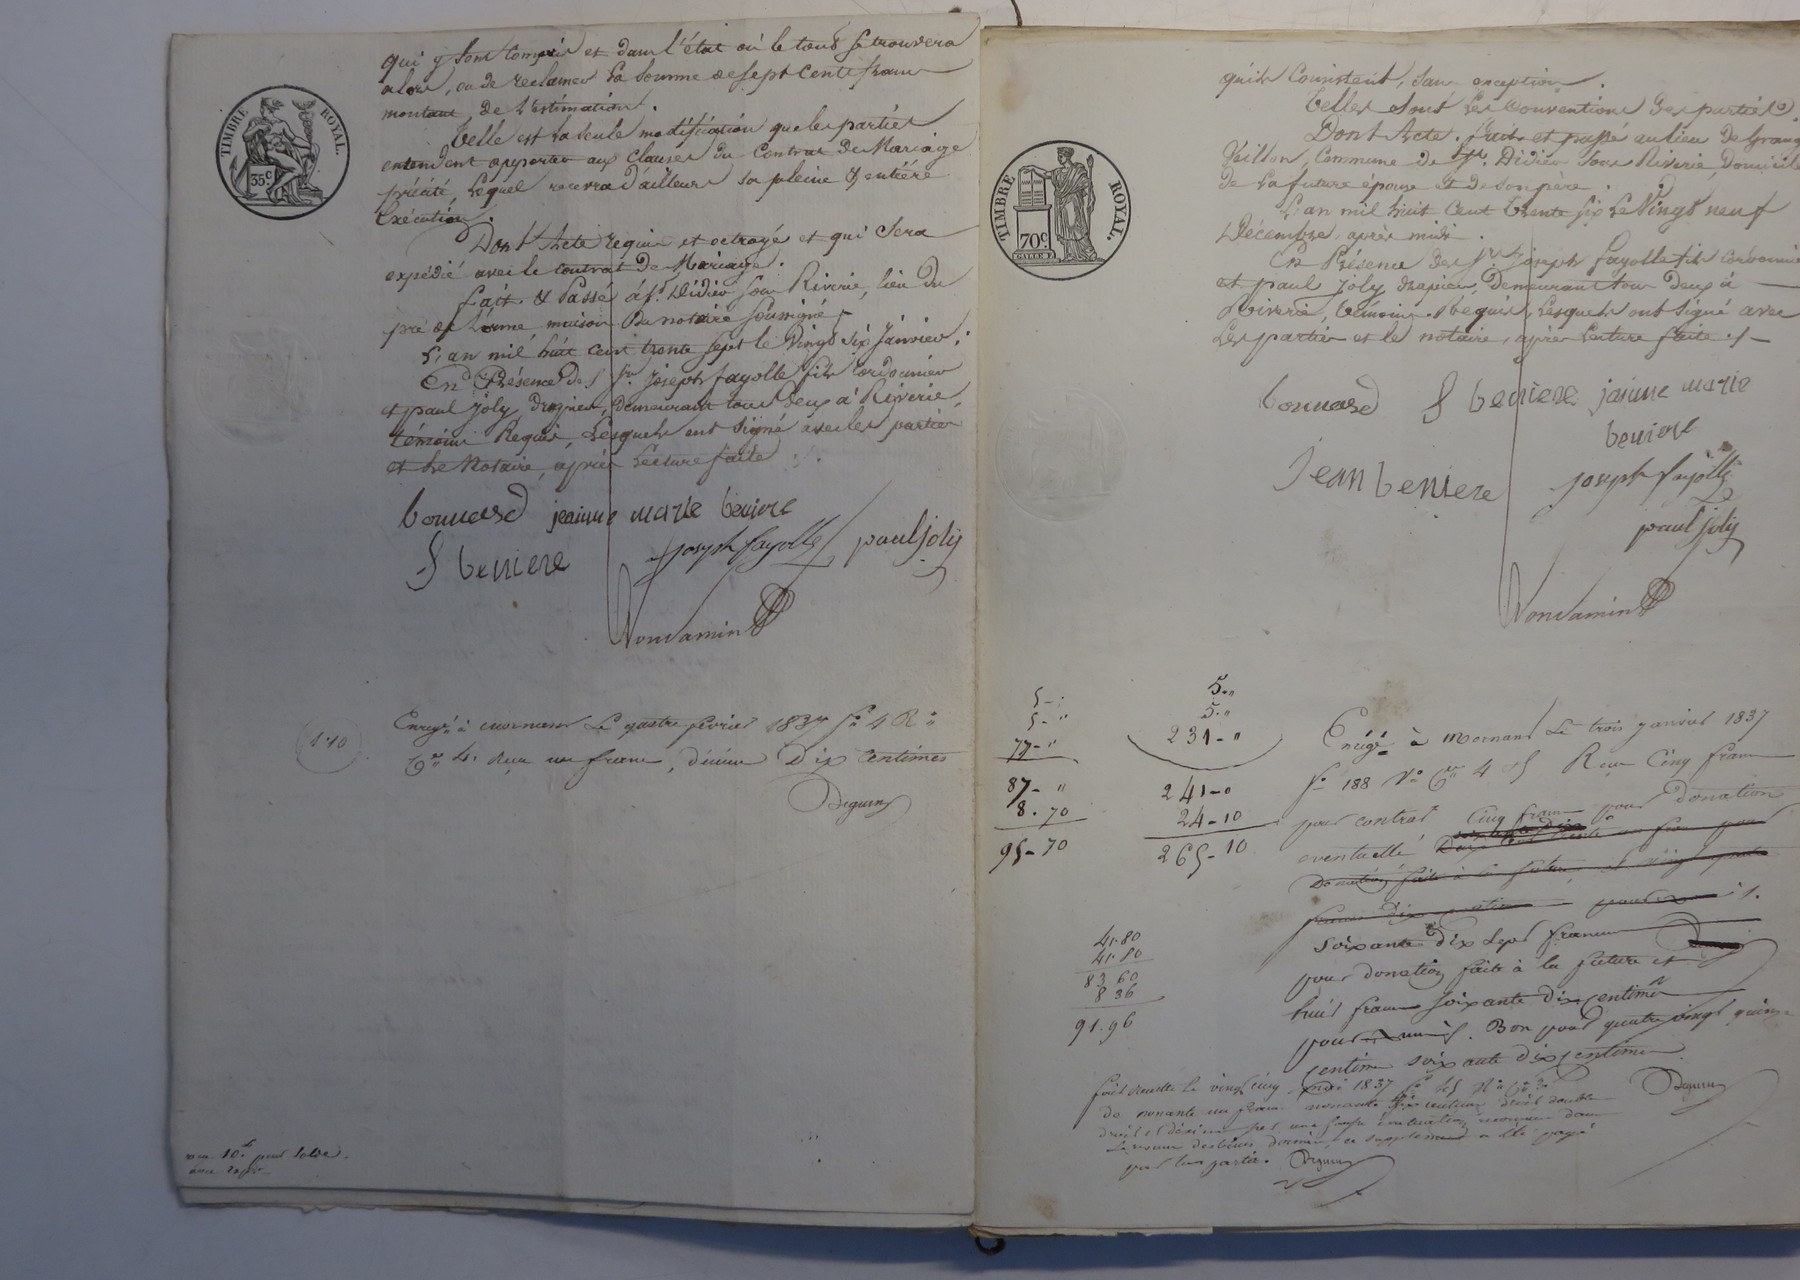 TIMBRE ROYAL.
35c
qui y sont compris et dans l'état où le tout se trouvera
alors, ou de reclamer la somme de sept cents francs
montant de l'estimation.
Telle est la seule modification que les parties
entendent apporter aux clauses du contrat de Mariage
précité, lequel recevra d'ailleurs sa pleine & entière
Exécution.
Dont Acte requis et octroyé et qui sera
expédié avec le contrat de Mariage.
Fait & Passé à St Didier sous Riverie, lieu du
pré de l'orme maison du notaire soussigné
L'an mil huit cent trente sept le Vingt six Janvier.
En Présence des Srs Joseph fayolle fils cordonnier
et paul Joly, drapier, demeurant tous deux à Riverie,
témoins Requis, Lesquels ont signé avec les parties
et Le Notaire, après Lecture faite.
bonnard jeanne marie beniere
beniere joseph fayolle paul joly
Enregé à mornant Le quatre février 1837 fo 4 Ro
Co 4. Reçu un franc, décime Dix Centimes
1.10
TIMBRE ROYAL.
70c
qu'ils Consistent, sans exception.
Telles sont Les Conventions des parties.
Dont Acte. fait et passé au lieu de
Commune de St. Didier sous Riverie, Domicile
de La future épouse et de son père.
L'an mil huit Cent trente six Le Vingt neuf
Décembre, après midi.
En Présence des Srs Joseph fayolle fils cordonnier
et paul Joly drapier, Demeurant tous Deux à
Riverie, témoins Requis, Lesquels ont signé avec
Les parties et le notaire, après Lecture faite.
bonnard beniere jeanne marie
beniere
Jean beniere joseph fayolle
paul joly
5-"
5-"
77-"
87-"
8.70
95-70
5."
5."
231-"
241-"
24-10
265-10
41.80
41.80
83 60
8 36
91.96
Enregé à Mornant Le trois janvier 1837
fo 188 Vo Co 4 et 5 Reçu Cinq francs
pour contrat Cinq francs pour donation
eventuelle
soixante dix sept francs
pour donation faite à la future et
huit francs soixante dix centimes
pour Bon pour quatre vingt quinze
centimes soixante dix centimes
fait recette Le vingt cinq 1837
de nonante un francs nonante six centimes droit double
droit et décime sur une
supplément a été payé
par les parties.